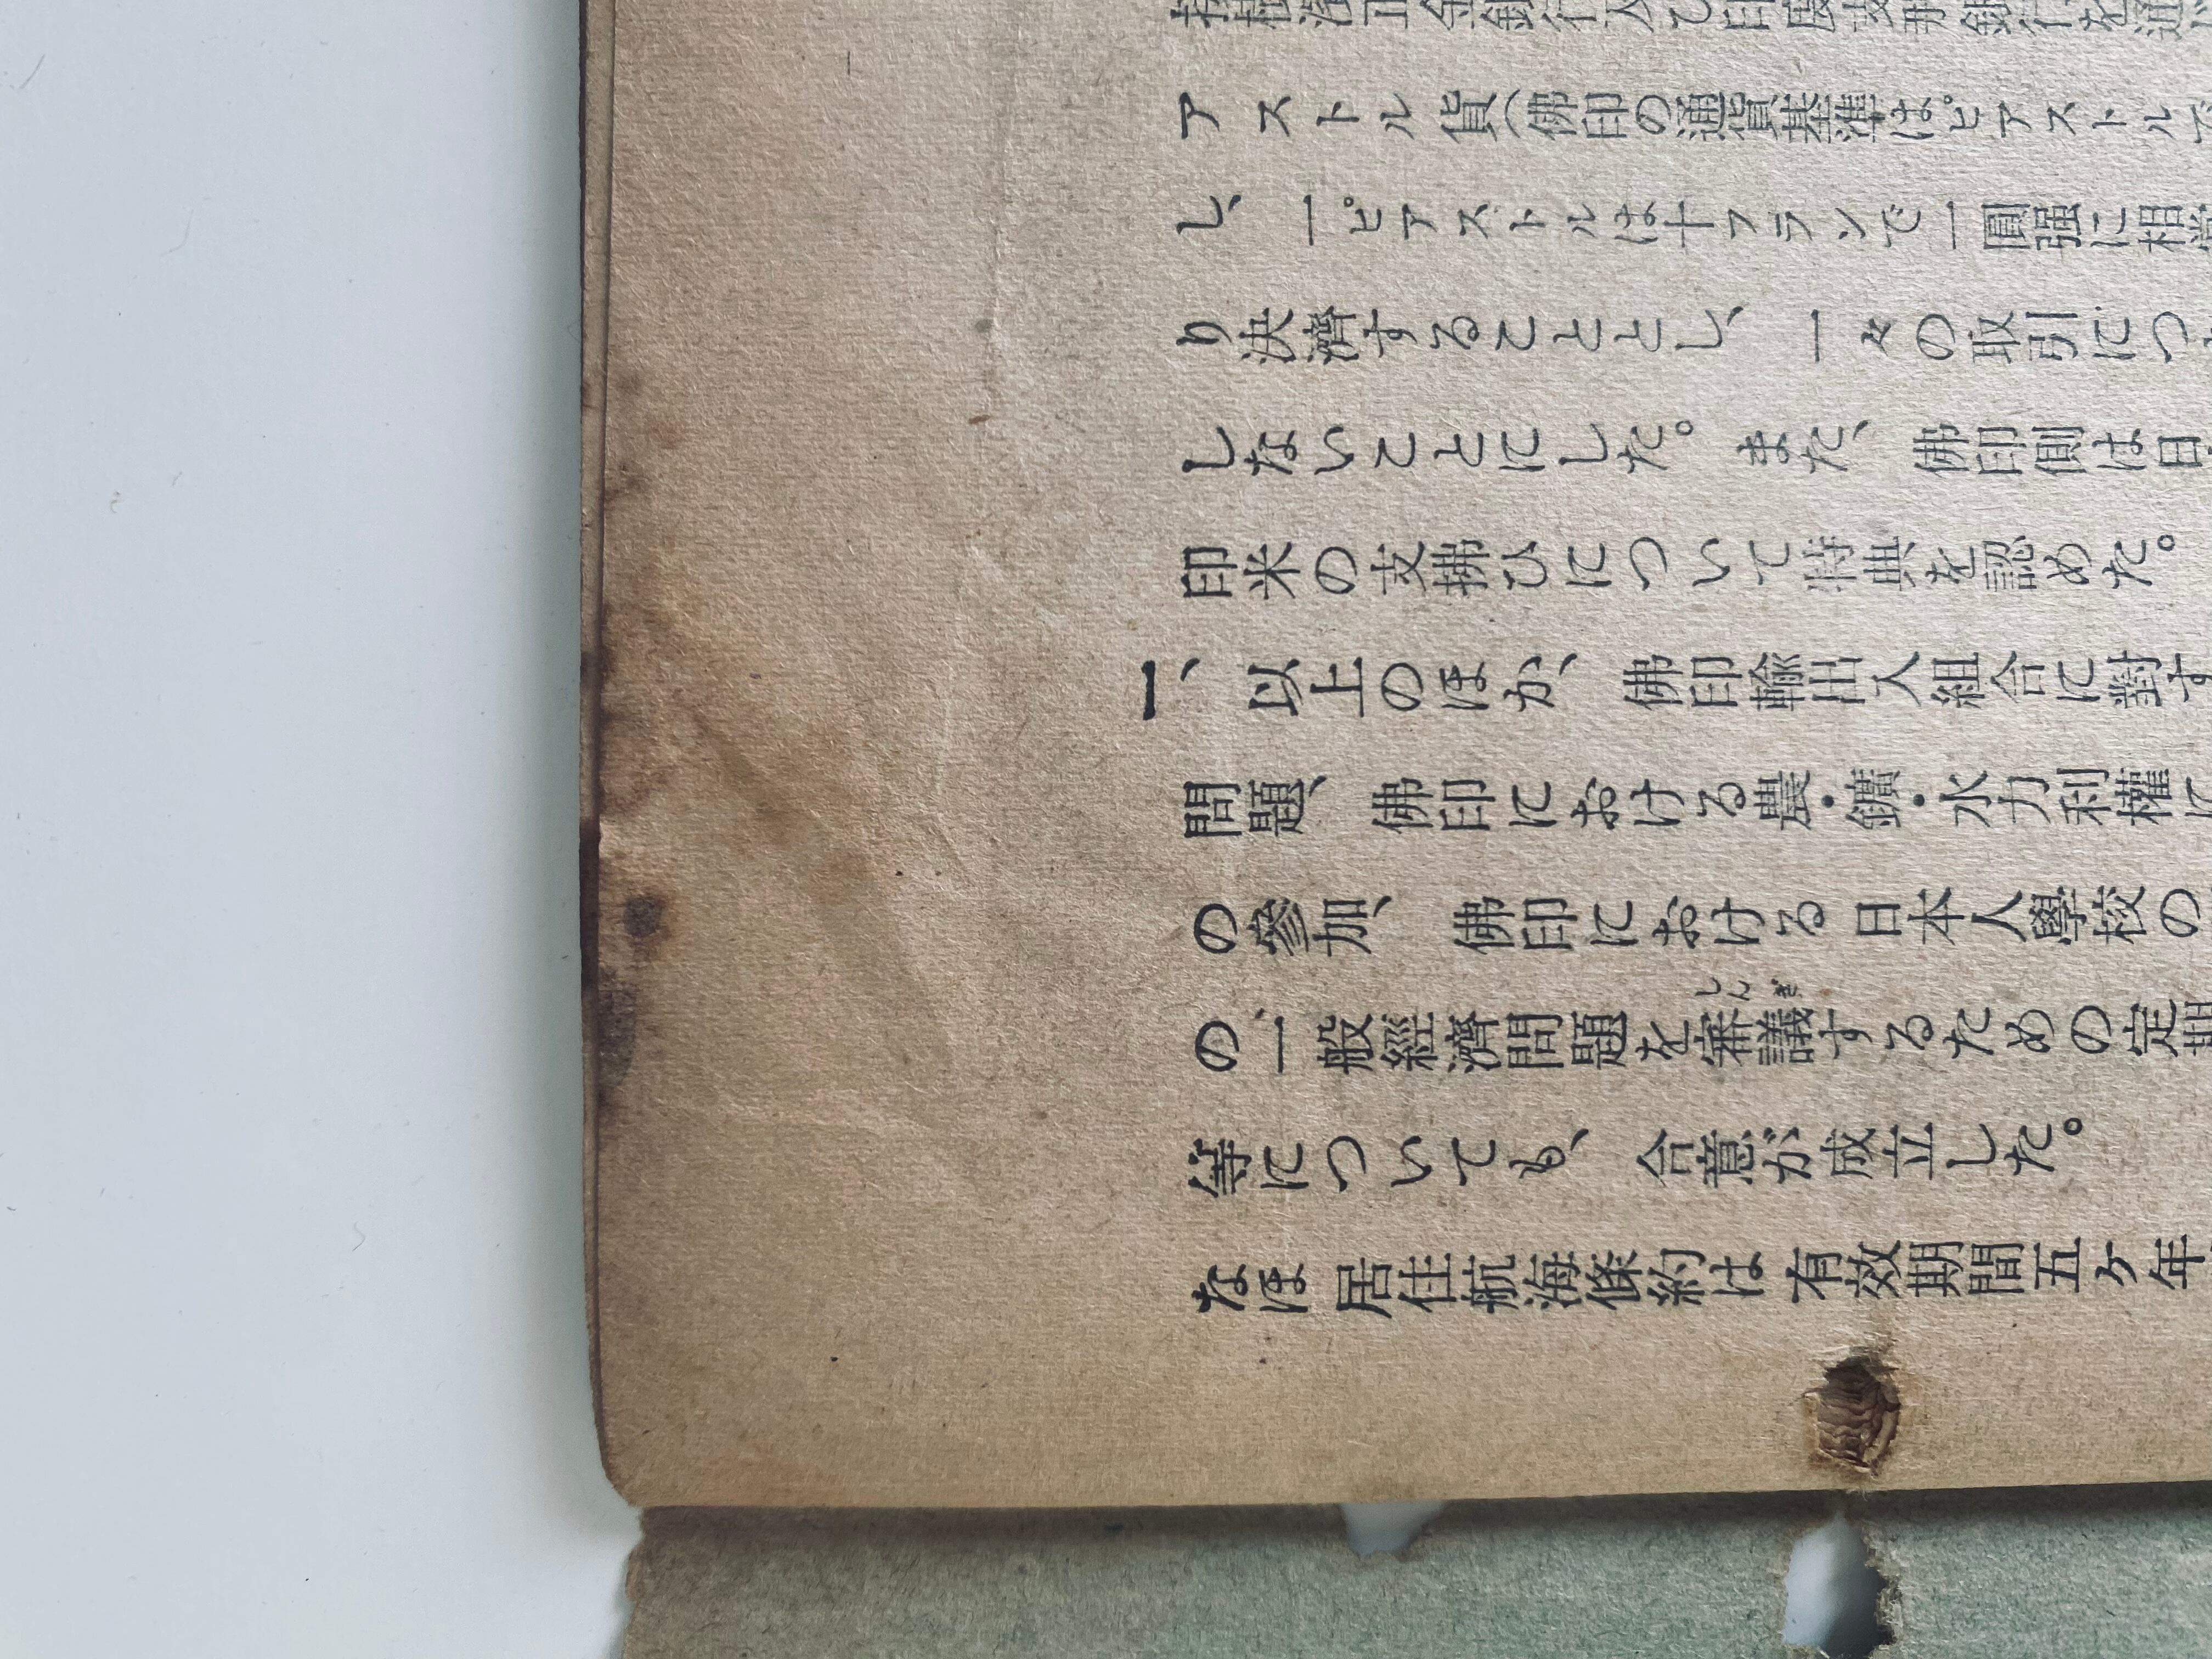 橫濱正金銀行及び印度支那銀行を通
アストル貨（佛印の通貨基準はピアストルで
し、一ピアストルは十フランで一圓强に相當
り決濟することとし、一々の取引につ
しないことにした。また、佛印側は日
印米の支拂ひについて特典を認めた。
一、以上のほか、佛印輸出入組合に對す
問題、佛印における農・鑛・水力利權に
の參加、佛印における日本人學校の
の一般經濟問題を審議するための定期
しんぎ
等についても、合意が成立した。
なほ居住航海條約は有效期間五ケ年